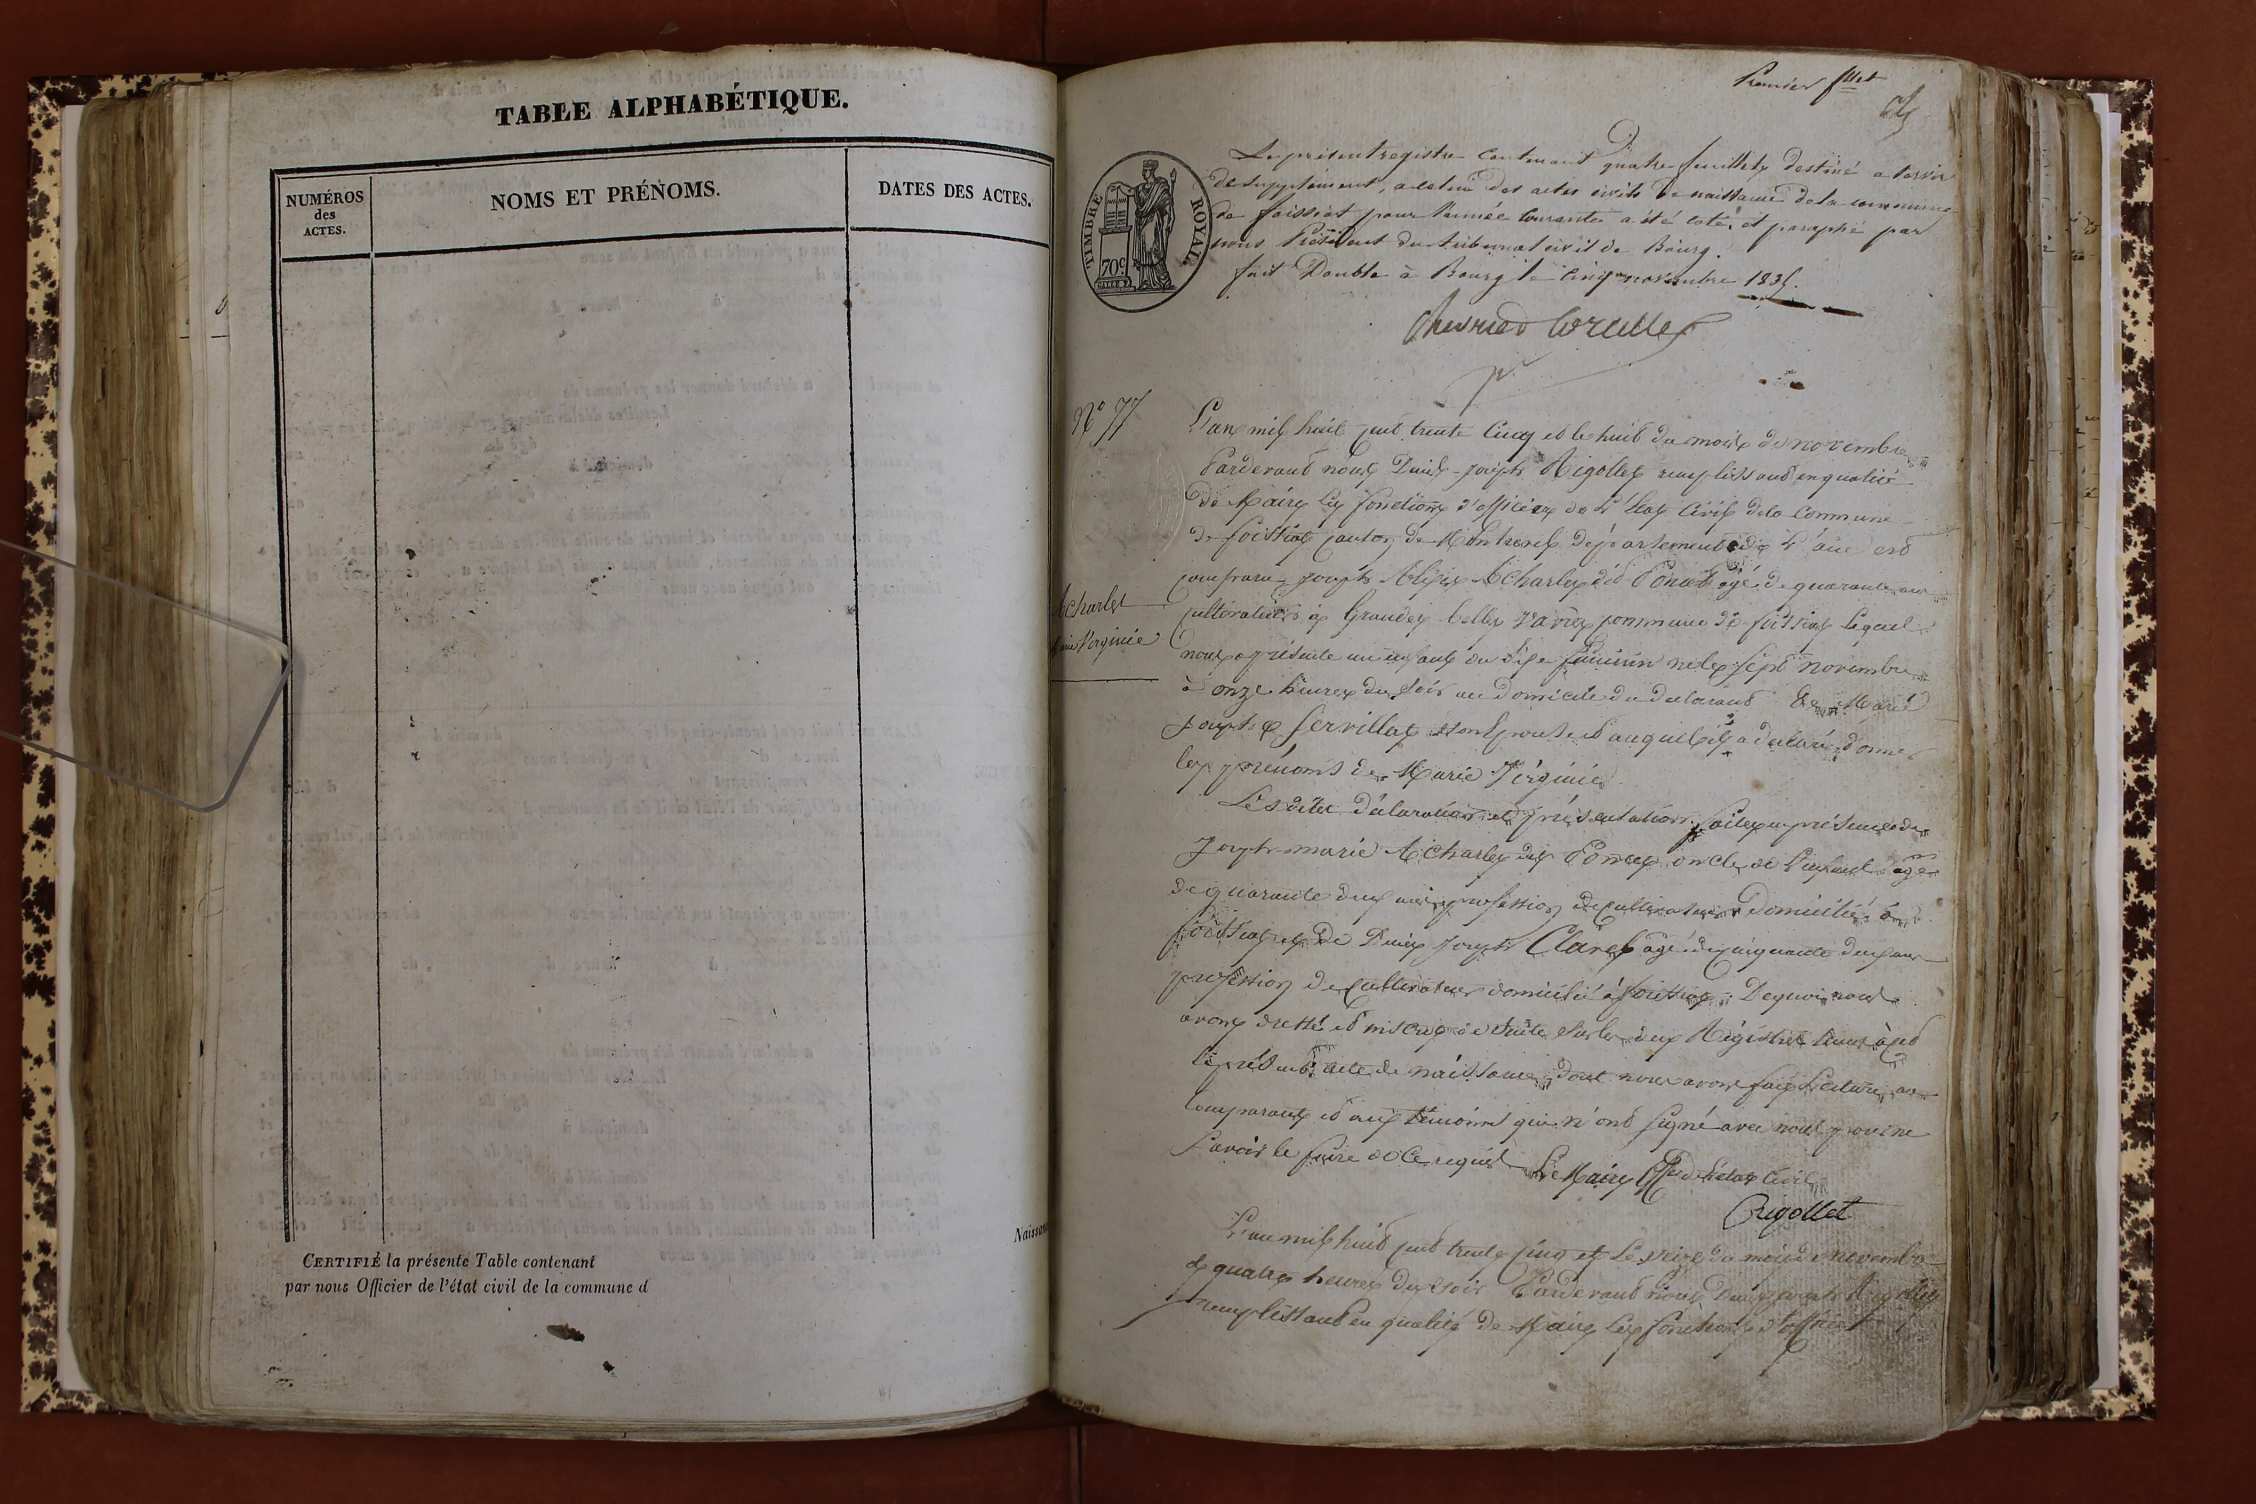 TABLE ALPHABÉTIQUE.
NUMÉROS
des
ACTES.
NOMS ET PRÉNOMS.
DATES DES ACTES.
CERTIFIÉ la présente Table contenant
par nous Officier de l'état civil de la commune d
Naissan
Premier
TIMBRE ROYAL
70c
Le présent registre contenant quatre feuillets destiné a servir
de supplément, a celui des actes civils de naissance de la commune
de foissiat pour l'année courante a été coté et paraphé par
nous Président du tribunal civil de Bourg.
fait Double à Bourg le cinq novembre 1835.
N° 77
L'an mil huit cent trente cinq et le huit du mois de novembre
Pardevant nous Denis joseph Rigollet remplissant en qualité
de Maire les fonctions d'officier de L'état Civil de la Commune
de foissiat canton de Montrevel département de L'ain est
comparu joseph Alexis Acharles dit Poncet agé de quarante ans
cultivateur à commune de foissiat lequel
nous a présenté un enfant du sexe féminin né le sept novembre
à onze heures du soir au domicile du declarant de Marie
joseph Servillat son épouse et auquel il a declaré donner
les prénoms de Marie Virginie
Acharles
Marie Virginie
Les dites déclaration et présentation faites en présence de
Joseph marie Acharles dit Poncet oncle de l'enfant agé
de quarante deux ans profession de cultivateur domicilié à
foissiat et de Denis joseph Claret agé de cinquante deux ans
profession de Cultivateur domicilié à foissiat. De quoi nous
avons dressé et inscrit de suite sur les deux Régistres tenus à cet
le présent acte de naissance dont nous avons fait lecture au
comparant et aux témoins qui n'ont signé avec nous pour ne
savoir le faire de ce requis Le Maire Offer de L'état Civil
Rigollet
L'an mil huit cent trente cinq et le seize du mois de novembre
à quatre heures du soir Pardevant nous Denis joseph Rigollet
remplissant en qualité de Maire les fonctions d'officier